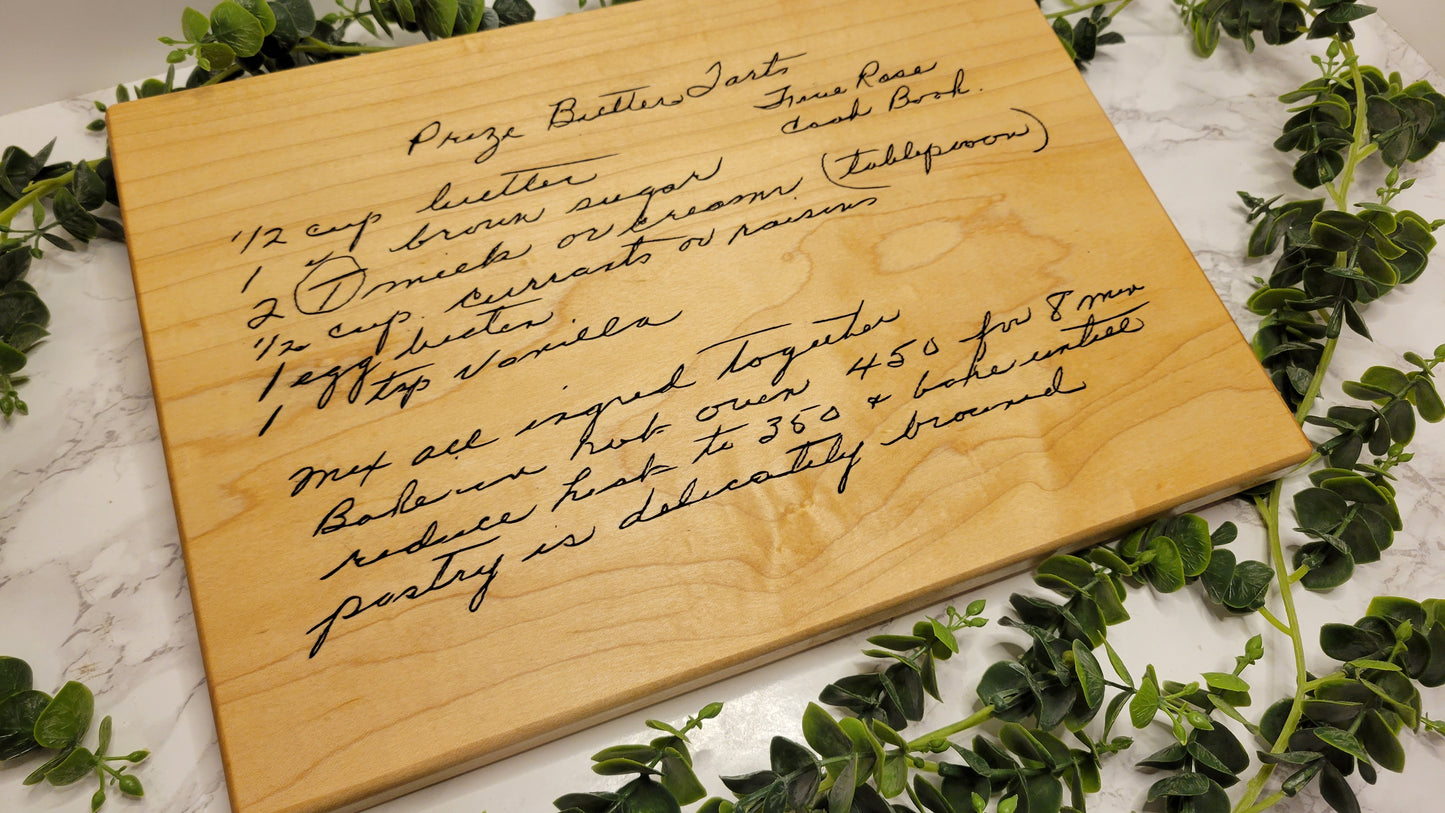 Prize Butter Tarts
Five Rose
Cook Book.
1/2 cup butter
1 " brown sugar
2 T milk or cream (tablepoon)
1/2 cup currants or raisins
1 egg beaten
1 tsp vanilla
Mix all ingred together
Bake in hot oven 450 for 8 min
reduce heat to 350 & bake untill
pastry is delicately browned